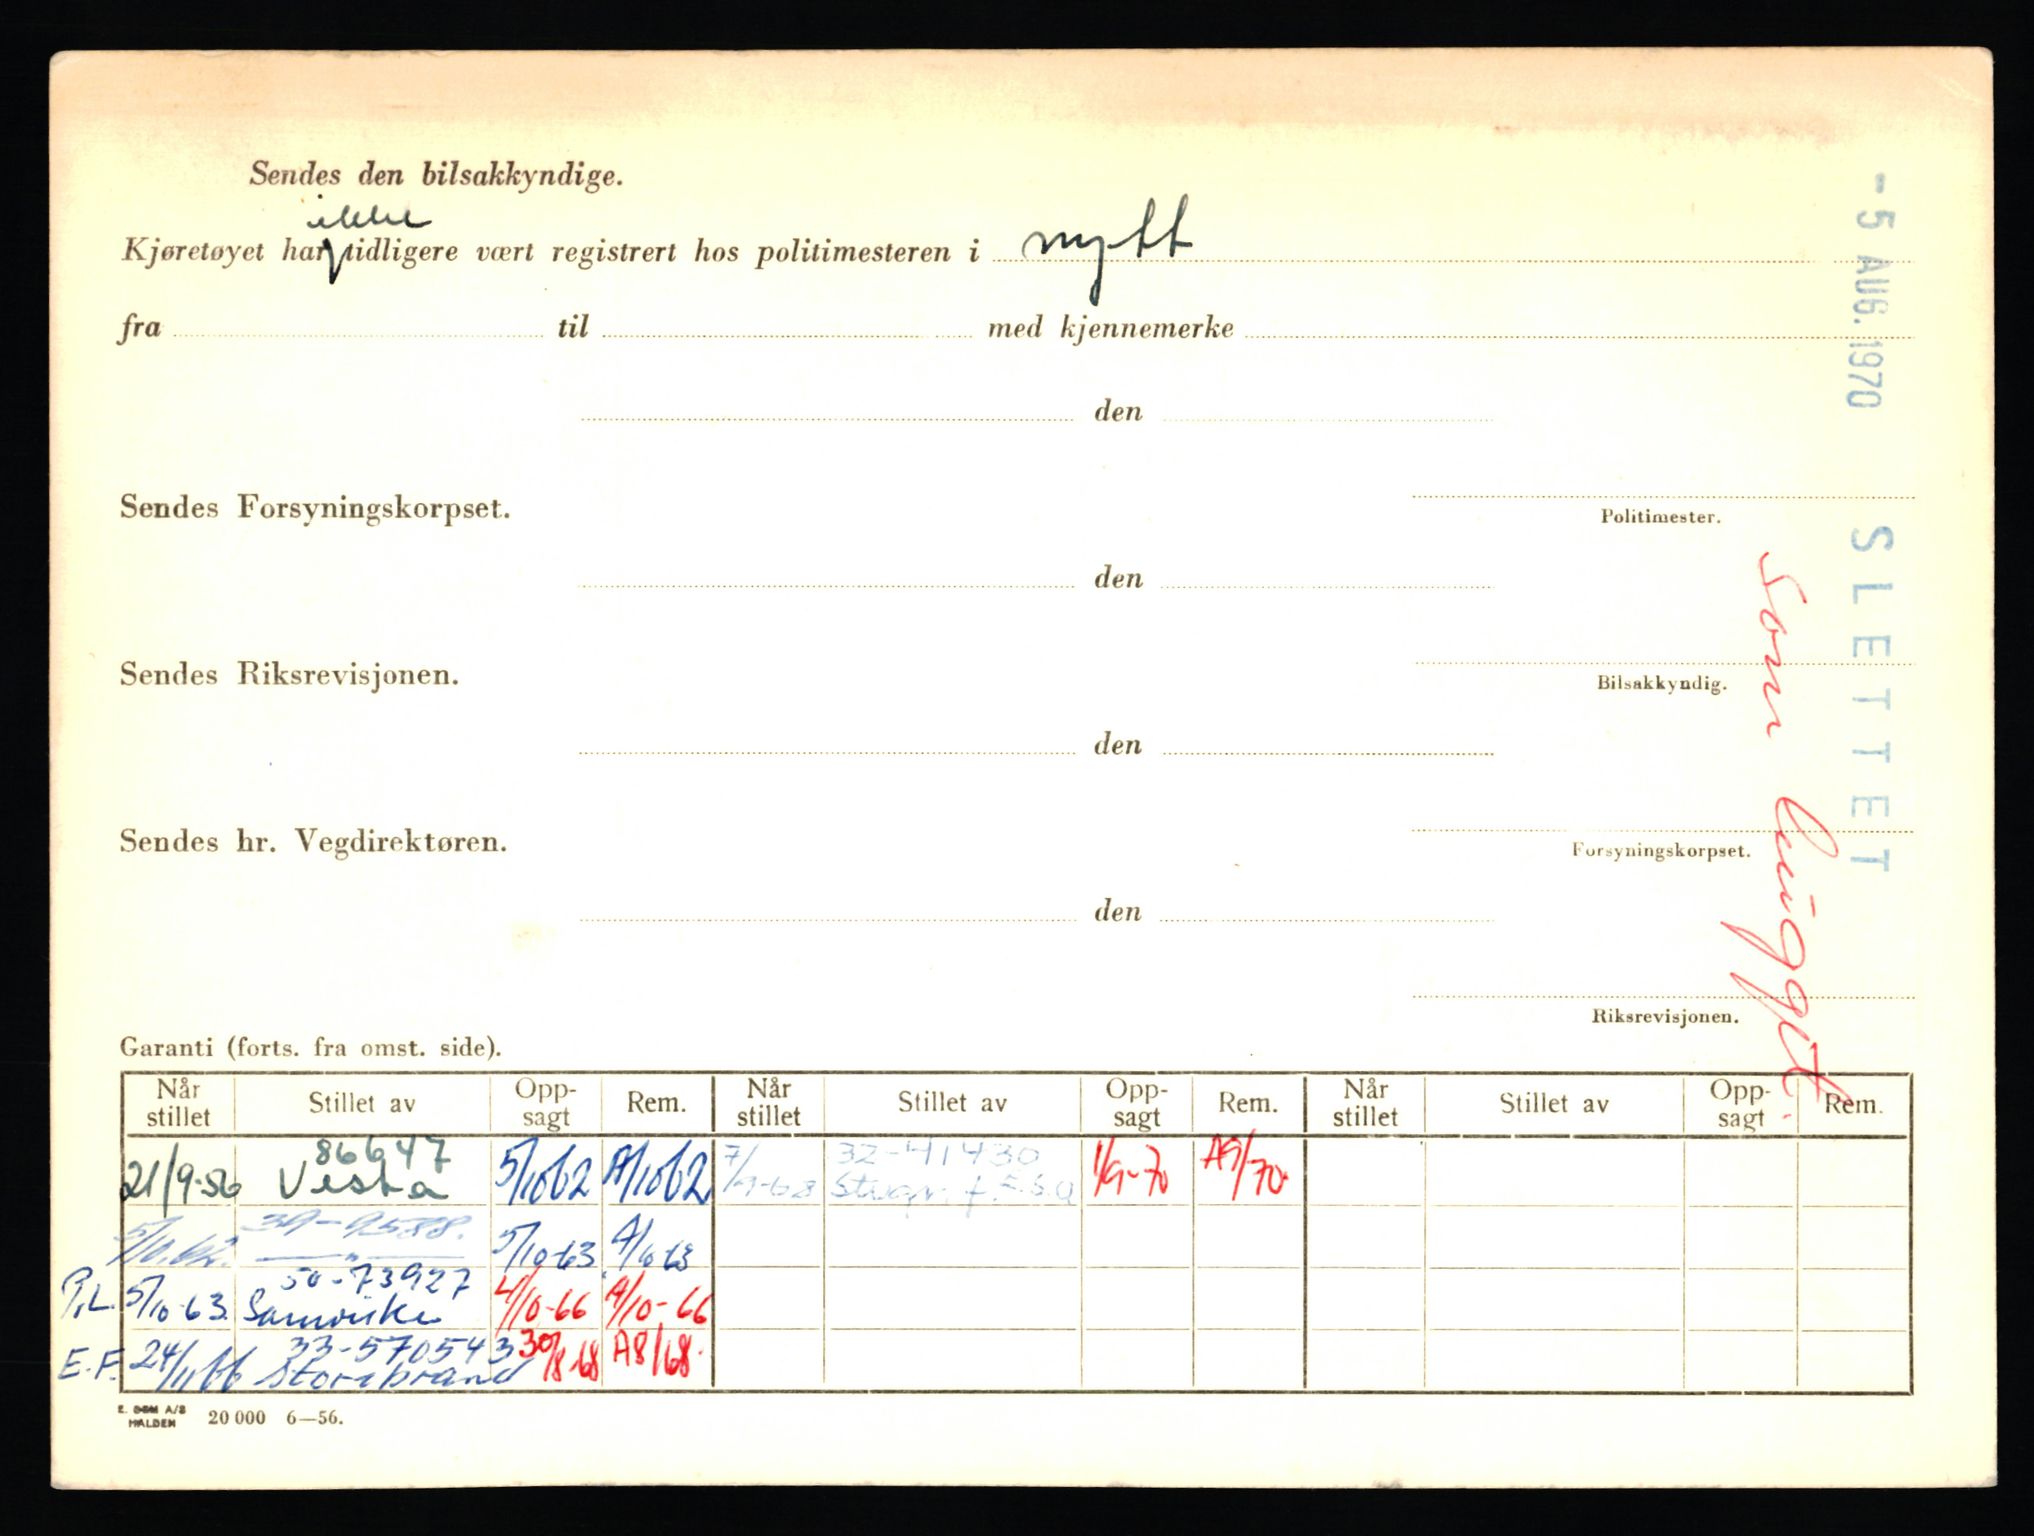 Sendes den bilsakkyndige.
ikke
Kjøretøyet har tidligere vært registrert hos politimesteren i nytt
fra til med kjennemerke
den
Sendes Forsyningskorpset.
Politimester.
den
Sendes Riksrevisjonen.
Bilsakkyndig.
den
Sendes hr. Vegdirektøren.
Forsyningskorpset.
den
Riksrevisjonen.
- 5 AUG. 1970 SLETTET
som hugget.
Garanti (forts. fra omst. side).
Når stillet Stillet av Opp-sagt Rem. Når stillet Stillet av Opp-sagt Rem. Når stillet Stillet av Opp-sagt Rem.
86647 32-41430
21/9-56 Vesta 5/10 62 A/10 62 7/9-68 1/9-70 A9/70.
39-9588.
5/10.62. —"— 5/10-63 A/10-63
50-73927
P.L. 5/10-63 Samvirke 4/10-66 A/10-66
33-570543
E.F. 24/11 66 Storebrand 30/8-68 A8/68.
E. SEM A/S
HALDEN 20 000 6—56.